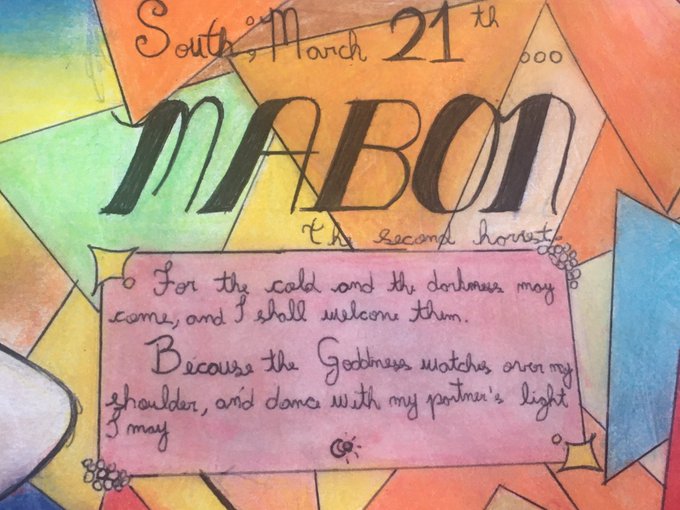 South, March 21th ...
MABON
The second harvest
For the cold and the darkness may
come, and I shall welcome them.
Because the Goddness watches over my
shoulder, and dance with my partner's light
I may